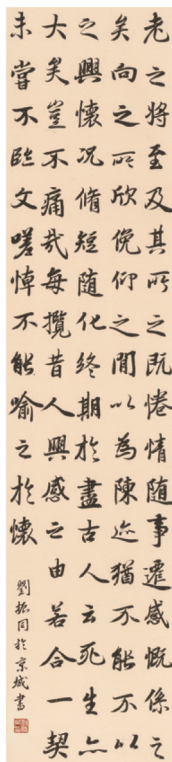 老之將至及其所之既惓情随事遷感慨係之
矣向之所欣俛仰之間以為陳迹猶不能不以
之興懷况脩短随化終期於盡古人云死生亦
大矣豈不痛哉每攬昔人興感之由若合一契
未嘗不臨文嗟悼不能喻之於懷
劉振同於京城書